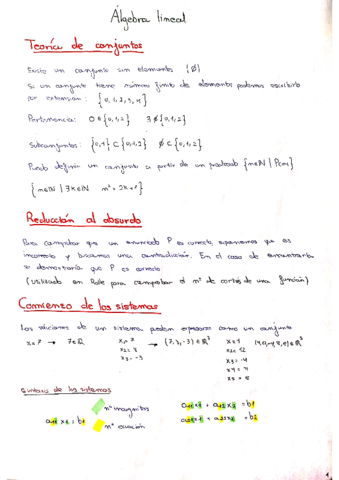 Álgebra lineal
Teoría de conjuntos
Existe un conjunto sin elementos {∅}
Si un conjunto tiene número finito de elementos podemos escribirlo
por extensión: {0,1,2,3,4}
Pertenencia: 0∈{0,1,2} 3∉{0,1,2}
Subconjuntos: {0,1}⊂{0,1,2} ∅⊂{0,1,2}
Puedo definir un conjunto a partir de un predicado {m∈ℕ | P(m)}
{m∈ℕ | ∃k∈ℕ m²=2k+1}
Reducción al absurdo
Para comprobar que un enunciado P es correcto, suponemos que es
incorrecto y buscamos una contradicción. En el caso de encontrarla
se demostraría que P es correcto
(utilizado en Rolle para comprobar el nº de cortes de una función)
Comienzo de los sistemas
Las soluciones de un sistema pueden expresarse como un conjunto
x=7 → 7∈ℝ x₁=7 → (7,3,-3)∈ℝ³ x=4
x₃=-3 x₃=-4
Sintaxis de los sistemas
nº incógnitas a₁₁x₁ + a₁₂x₂ = b₁
a₁₁x₁ = b₁ nº ecuación a₂₁x₁ + a₂₂x₂ = b₂